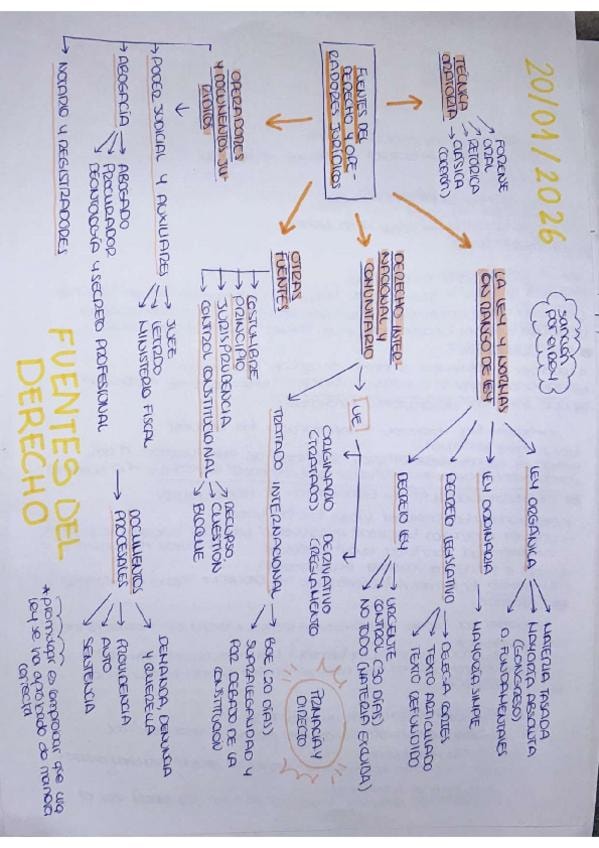 20/01/2026
FUENTES DEL
DERECHO Y OPE-
RADORES JURÍDICOS
TÉCNICA
ORATORIA
FORENSE
ORAL
RETÓRICA
CLÁSICA
LA LEY Y NORMAS
CON RANGO DE LEY
sanción
por el rey
LEY ORGÁNICA
MATERIA TASADA
MAYORÍA ABSOLUTA
(CONGRESO)
D. FUNDAMENTALES
LEY ORDINARIA
MAYORÍA SIMPLE
DECRETO LEGISLATIVO
DELEGA CORTES
TEXTO ARTICULADO
TEXTO REFUNDIDO
DECRETO LEY
URGENTE
CONTROL (30 DÍAS)
NO TODO (MATERIA EXCLUIDA)
DERECHO INTER-
NACIONAL Y
COMUNITARIO
UE
ORIGINARIO
(TRATADO)
DERIVATIVO
(REGLAMENTO
PRIMACÍA Y
DIRECTO
TRATADO INTERNACIONAL
BOE (20 DÍAS)
SUPRALEGALIDAD Y
POR DEBAJO DE LA
CONSTITUCIÓN
OTRAS
FUENTES
COSTUMBRE
PRINCIPIO
JURISPRUDENCIA
CONTROL CONSTITUCIONAL
RECURSO
CUESTIÓN
BLOQUE
OPERADORES
Y DOCUMENTOS JU-
RÍDICOS
PODER JUDICIAL Y AUXILIARES
JUEZ
LETRADO
MINISTERIO FISCAL
ABOGACÍA
ABOGADO
PROCURADOR
DEONTOLOGÍA Y SECRETO PROFESIONAL
NOTARIO Y REGISTRADORES
DOCUMENTOS
PROCESALES
DEMANDA, DENUNCIA
Y QUERELLA
PROVIDENCIA
AUTO
SENTENCIA
FUENTES DEL
DERECHO
*promulgar es comprobar que una
ley se ha aprobado de manera
correcta